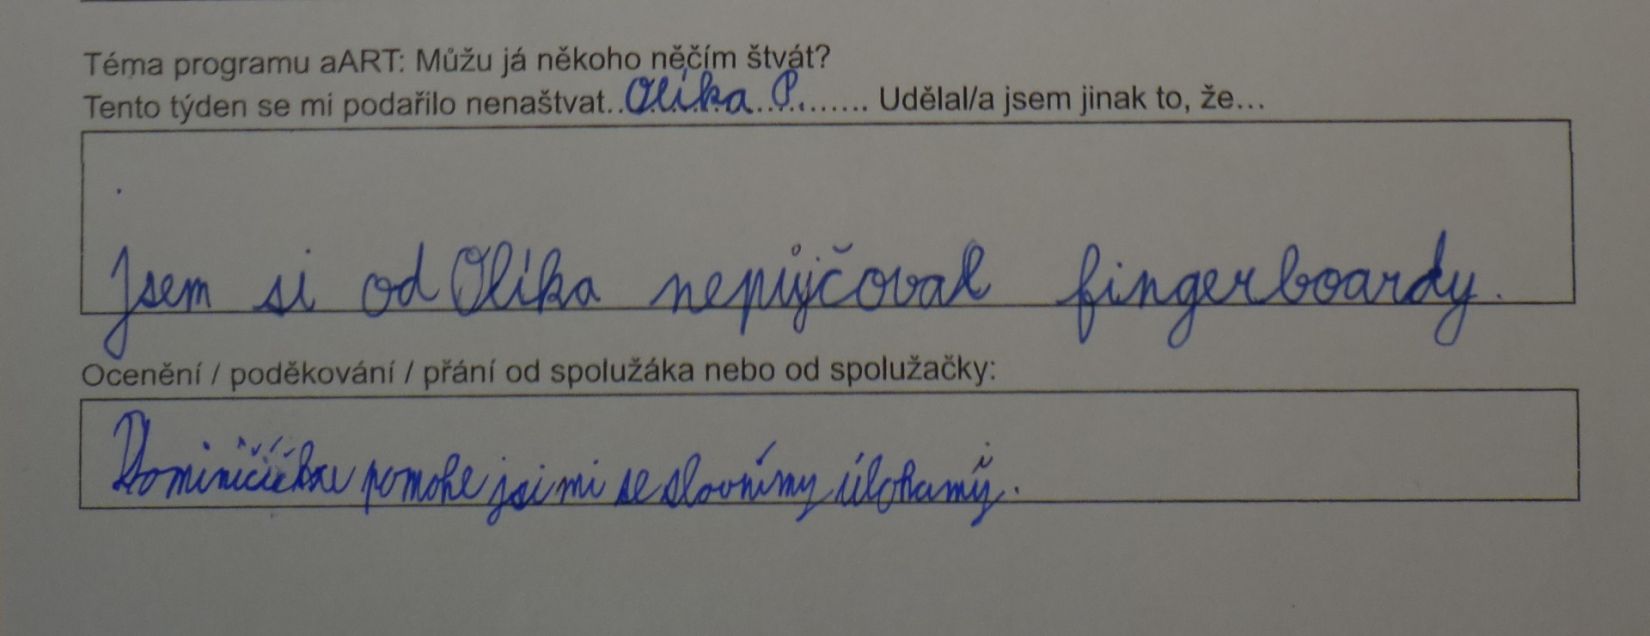 Téma programu aART: Můžu já někoho něčím štvát?
Tento týden se mi podařilo nenaštvat..Olíka P........ Udělal/a jsem jinak to, že...
Jsem si od Olíka nepůjčoval fingerboardy.
Ocenění / poděkování / přání od spolužáka nebo od spolužačky:
pomohe jsi mi se slovnímy úlohamy.